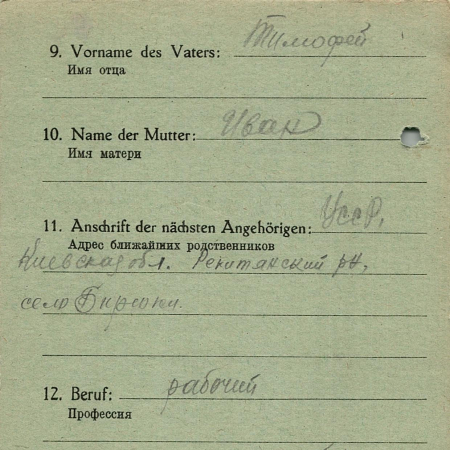 9. Vorname des Vaters: Тимофей
Имя отца
10. Name der Mutter: Иван
Имя матери
11. Anschrift der nächsten Angehörigen: УССР,
Адрес ближайших родственников
Киевская обл. Рекитянский рн,
село
12. Beruf: рабочий
Профессия